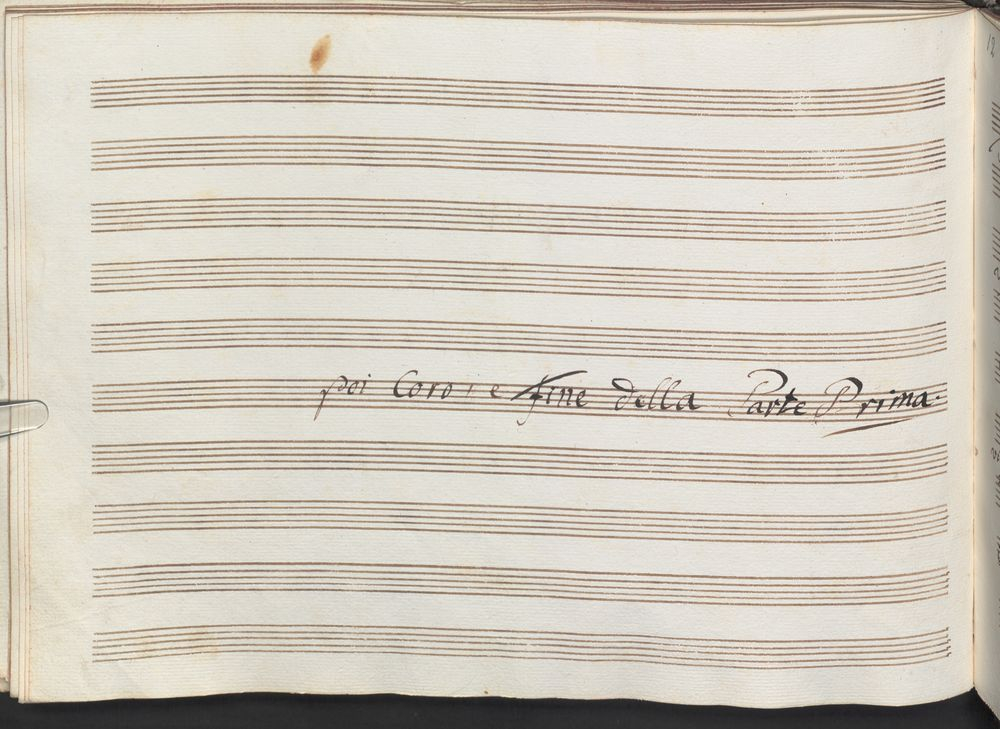 12
poi Coro, e Fine della Parte Prima.